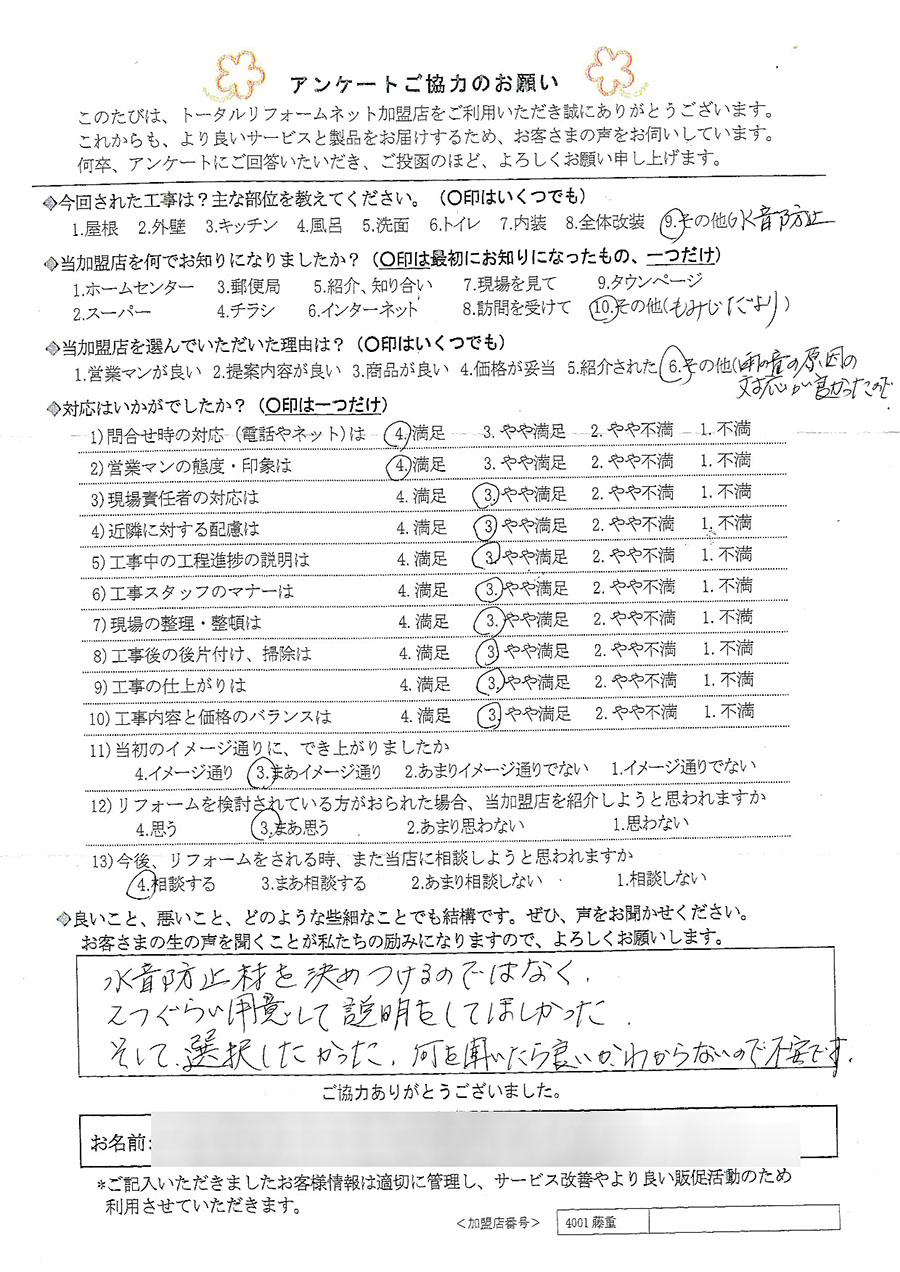 アンケートご協力のお願い
このたびは、トータルリフォームネット加盟店をご利用いただき誠にありがとうございます。
これからも、より良いサービスと製品をお届けするため、お客さまの声をお伺いしています。
何卒、アンケートにご回答いたいだき、ご投函のほど、よろしくお願い申し上げます。
◈今回された工事は？主な部位を教えてください。（〇印はいくつでも）
1.屋根 2.外壁 3.キッチン 4.風呂 5.洗面 6.トイレ 7.内装 8.全体改装 9.その他( 水音防止
◈当加盟店を何でお知りになりましたか？（〇印は最初にお知りになったもの、一つだけ）
1.ホームセンター 3.郵便局 5.紹介、知り合い 7.現場を見て 9.タウンページ
2.スーパー 4.チラシ 6.インターネット 8.訪問を受けて 10.その他(もみじだより)
◈当加盟店を選んでいただいた理由は？（〇印はいくつでも）
1.営業マンが良い 2.提案内容が良い 3.商品が良い 4.価格が妥当 5.紹介された 6.その他( の原因の
対応が良かったので
◈対応はいかがでしたか？（〇印は一つだけ）
1)問合せ時の対応（電話やネット）は 4.満足 3.やや満足 2.やや不満 1.不満
2)営業マンの態度・印象は 4.満足 3.やや満足 2.やや不満 1.不満
3)現場責任者の対応は 4.満足 3.やや満足 2.やや不満 1.不満
4)近隣に対する配慮は 4.満足 3.やや満足 2.やや不満 1.不満
5)工事中の工程進捗の説明は 4.満足 3.やや満足 2.やや不満 1.不満
6)工事スタッフのマナーは 4.満足 3.やや満足 2.やや不満 1.不満
7)現場の整理・整頓は 4.満足 3.やや満足 2.やや不満 1.不満
8)工事後の後片付け、掃除は 4.満足 3.やや満足 2.やや不満 1.不満
9)工事の仕上がりは 4.満足 3.やや満足 2.やや不満 1.不満
10)工事内容と価格のバランスは 4.満足 3.やや満足 2.やや不満 1.不満
11)当初のイメージ通りに、でき上がりましたか
4.イメージ通り 3.まあイメージ通り 2.あまりイメージ通りでない 1.イメージ通りでない
12)リフォームを検討されている方がおられた場合、当加盟店を紹介しようと思われますか
4.思う 3.まあ思う 2.あまり思わない 1.思わない
13)今後、リフォームをされる時、また当店に相談しようと思われますか
4.相談する 3.まあ相談する 2.あまり相談しない 1.相談しない
◈良いこと、悪いこと、どのような些細なことでも結構です。ぜひ、声をお聞かせください。
お客さまの生の声を聞くことが私たちの励みになりますので、よろしくお願いします。
水音防止材を決めつけるのではなく、
2つぐらい用意して説明をしてほしかった。
そして、選択したかった。何を聞いたら良いか、わからないので不安です。
ご協力ありがとうございました。
お名前:
*ご記入いただきましたお客様情報は適切に管理し、サービス改善やより良い販促活動のため
利用させていただきます。
＜加盟店番号＞ 4001 藤重